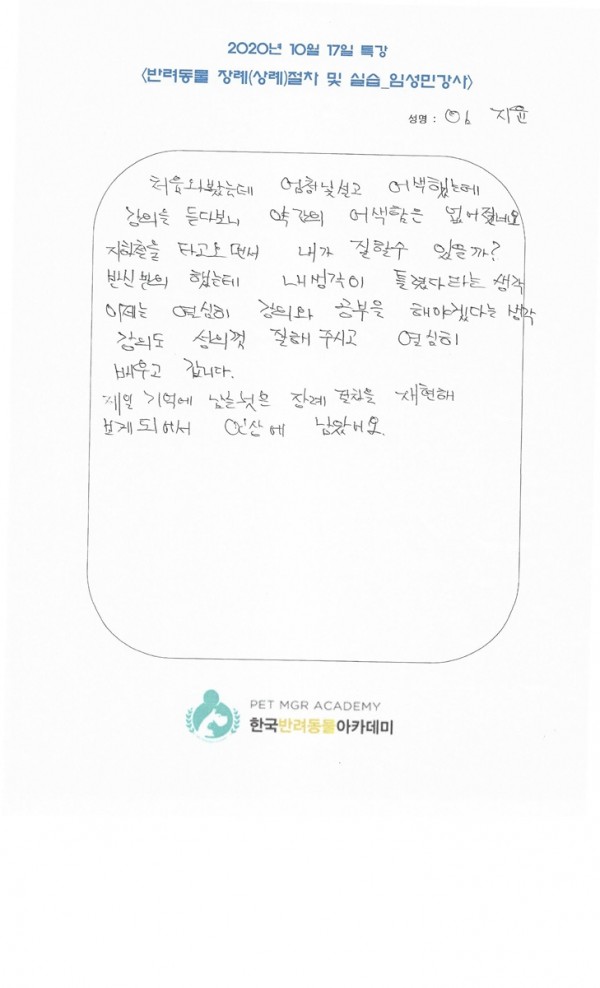 2020년 10월 17일 특강
<반려동물 장례(상례)절차 및 실습_임성민강사>
성명 : 이 지윤
처음와봤는데 엄청낯설고 어색했는데
강의를 듣다보니 약간의 어색함은 없어졌네요
지하철을 타고오면서 내가 잘할수 있을까?
반신반의 했는데 내생각이 틀렸다라는 생각
이제는 열심히 강의와 공부를 해야겠다는 생각
강의도 성의껏 잘해 주시고 열심히
배우고 갑니다.
제일 기억에 남는것은 장례 절차을 재현해
보게되어서 인상에 남았네요.
PET MGR ACADEMY
한국반려동물아카데미